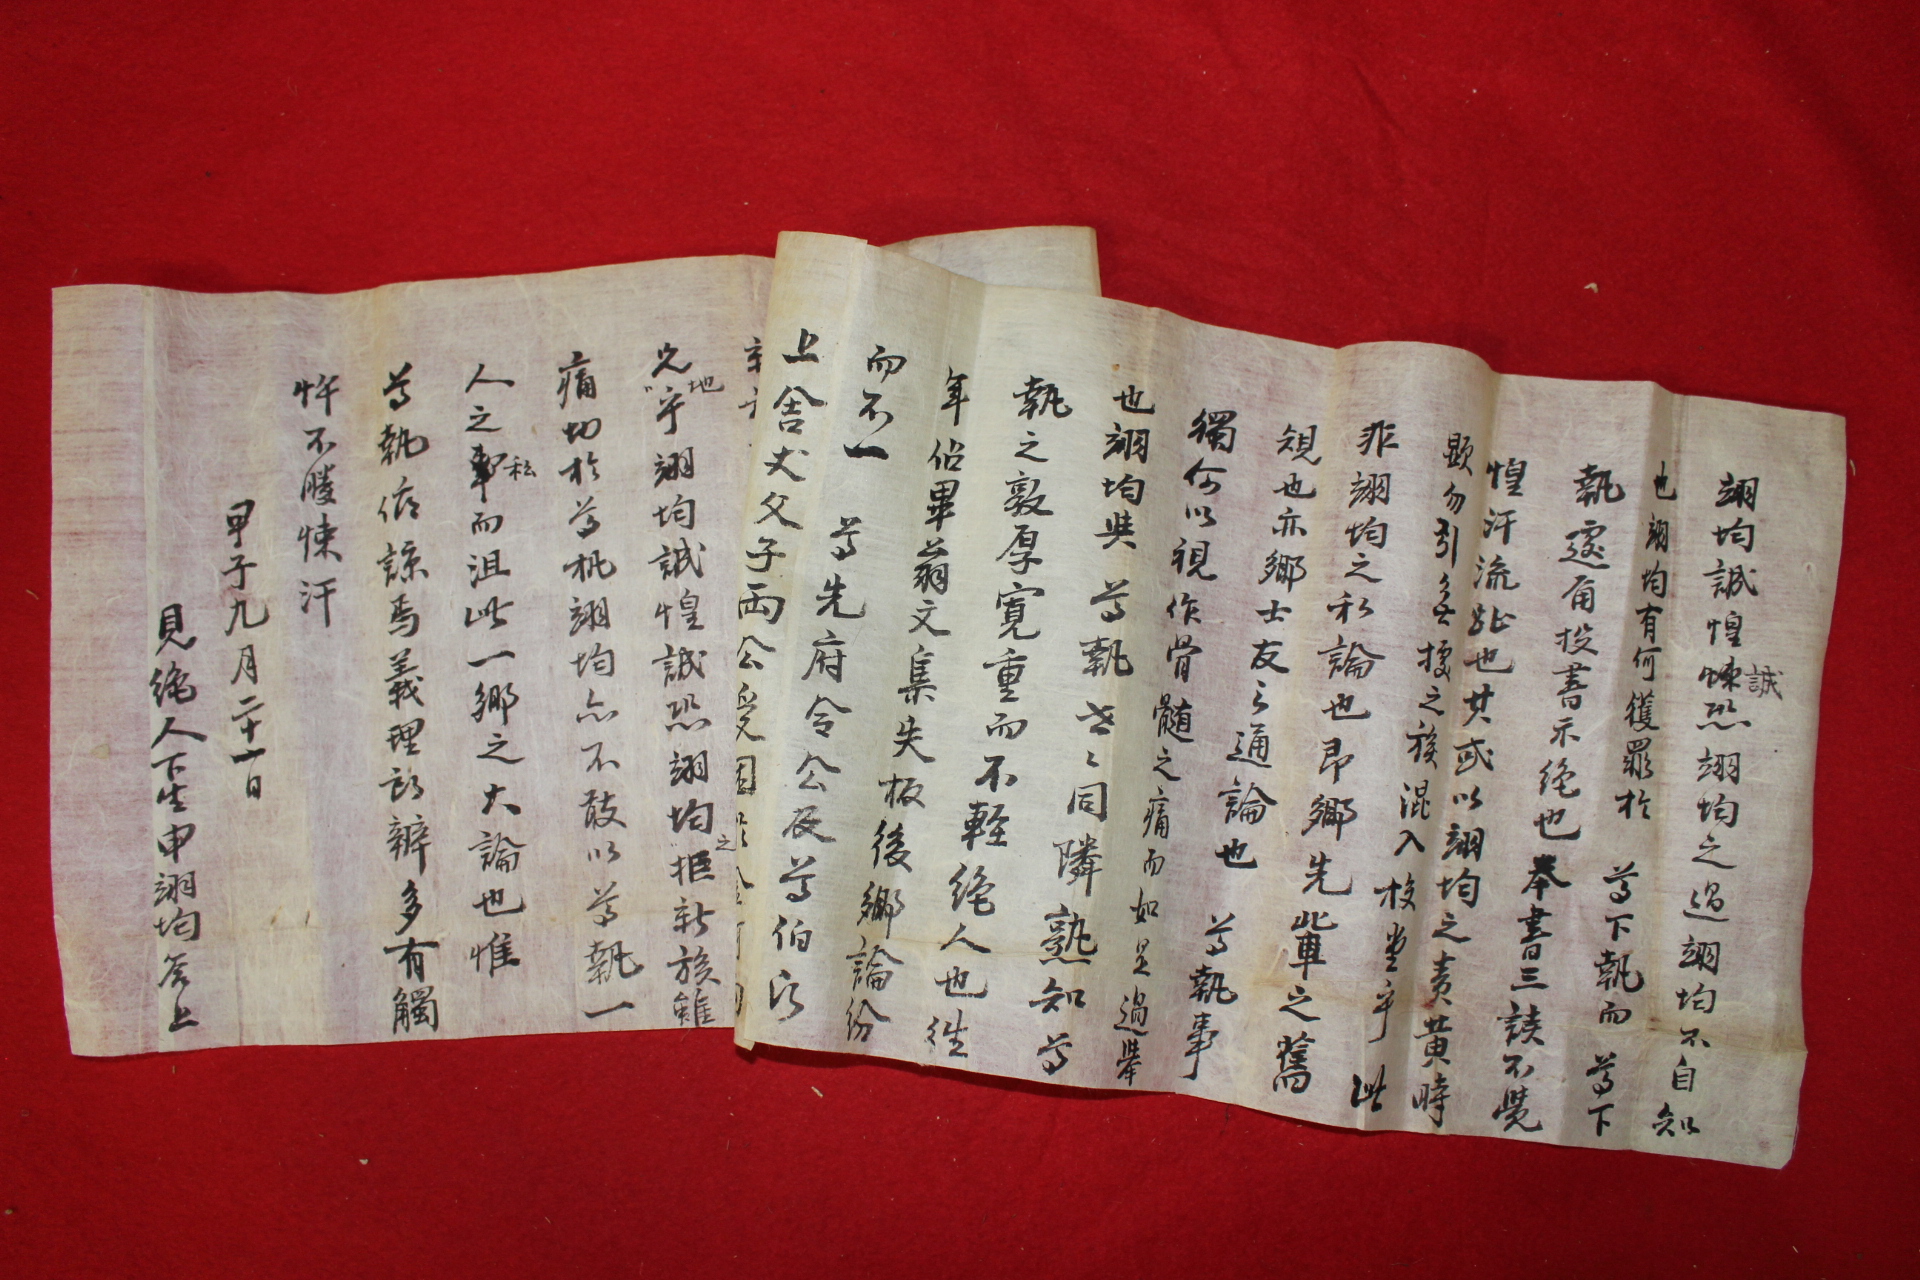 翊均誠惶誠悚恐翊均之過翊均不自知
也翊均有何獲罪於 尊下執而 尊下
執遽爾投書示絶也奉書三讀不覺
惶汗流趾也其或以翊均之責黃時
顯勿引無據之族混入校堂乎 此
非翊均之私論也卽鄕先輩之舊
規也亦鄕士友之通論也 尊執事
獨何以視作骨髓之痛而如是過擧
也翊均與 尊執世〻同隣熟知 尊
執之敦厚寬重而不輕絶人也徃
年佔畢翁文集失板後鄕論紛
而不一 尊先府令公及尊伯氏
上舍丈父子兩公受困
先乎地翊均誠惶誠恐翊均之拒新族雖
痛切於尊執翊均亦不敢以尊執一
人之私而沮此一鄕之大論也惟
尊執俯諒焉義理所辨多有觸
忤不勝悚汗
甲子九月二十一日
見絶人下生申翊均答上